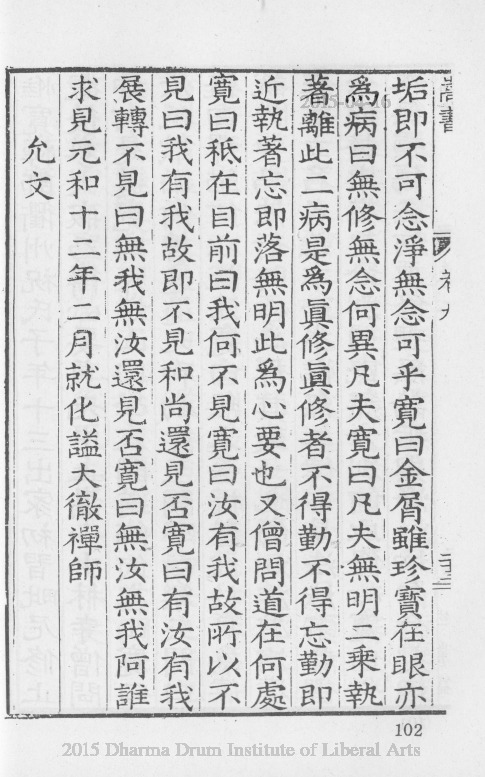 垢即不可念淨無念可乎寬曰金屑雖珍寶在眼亦
爲病曰無修無念何異凡夫寬曰凡夫無明二乘執
著離此二病是爲眞修眞修者不得勤不得忘勤即
近執著忘即落無明此爲心要也又僧問道在何處
寬曰秪在目前曰我何不見寬曰汝有我故所以不
見曰我有我故即不見和尚還見否寬曰有汝有我
展轉不見曰無我無汝還見否寬曰無汝無我阿誰
求見元和十二年二月就化謚大徹禪師
允文
102
2015 Dharma Drum Institute of Liberal Arts